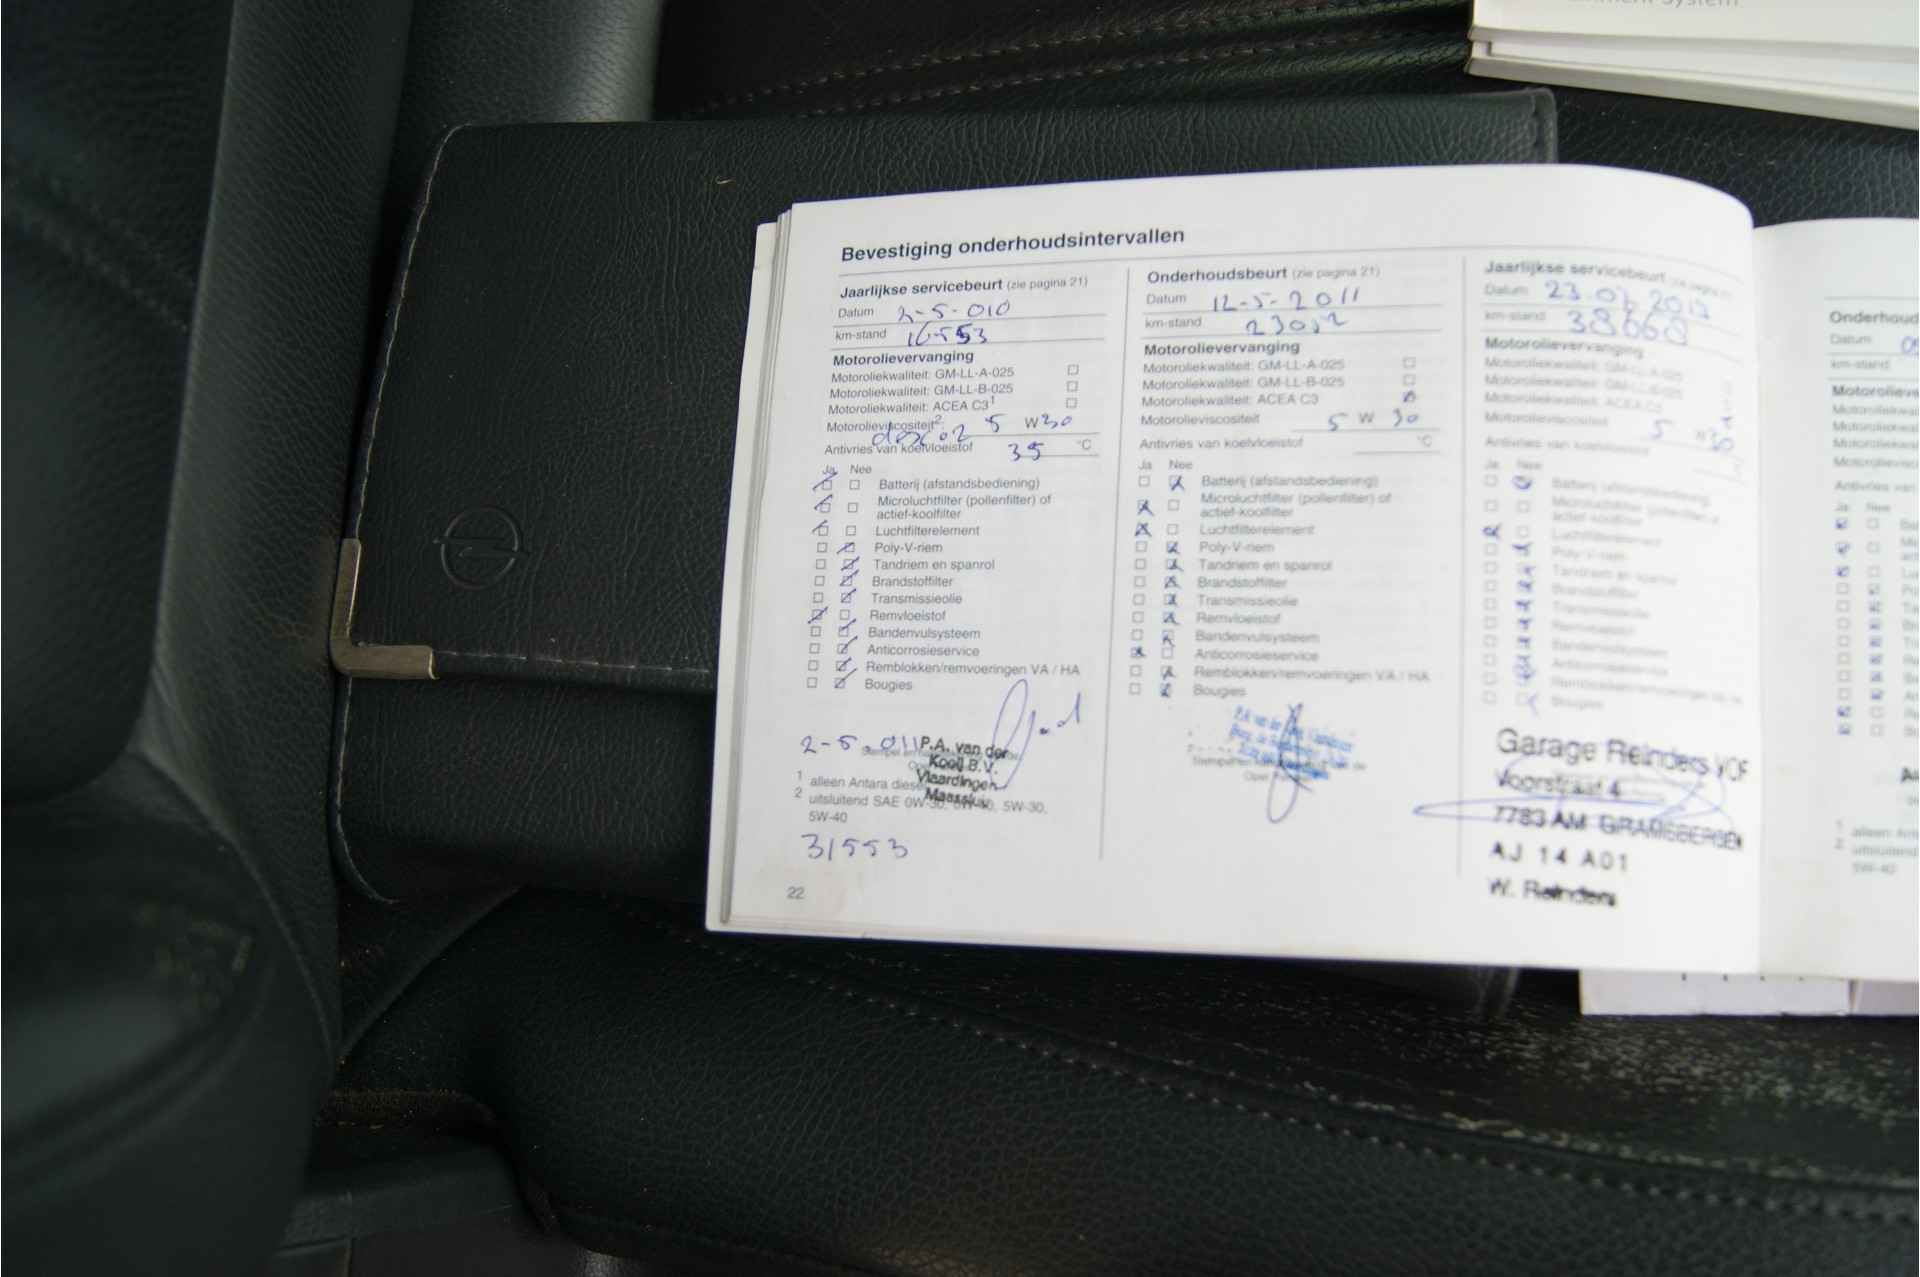 System
Bevestiging onderhoudsintervallen
Jaarlijkse servicebeurt (zie pagina 21)
Datum 2-5-010
km-stand 16553
Motorolievervanging
Motoroliekwaliteit: GM-LL-A-025
Motoroliekwaliteit: GM-LL-B-025
Motoroliekwaliteit: ACEA C3¹
Motorolieviscositeit²: 5 W 30
Antivries van koelvloeistof 35 °C
Ja Nee
Batterij (afstandsbediening)
Microluchtfilter (pollenfilter) of
actief-koolfilter
Luchtfilterelement
Poly-V-riem
Tandriem en spanrol
Brandstoffilter
Transmissieolie
Remvloeistof
Bandenvulsysteem
Anticorrosieservice
Remblokken/remvoeringen VA / HA
Bougies
2-5-011
P.A. van der
Kooij B.V.
Vlaardingen
Maassluis
1 alleen Antara
2 uitsluitend SAE 0W-30, 0W-40, 5W-30,
5W-40
31553
22
Onderhoudsbeurt (zie pagina 21)
Datum 12-5-2011
km-stand
Motorolievervanging
Motoroliekwaliteit: GM-LL-A-025
Motoroliekwaliteit: GM-LL-B-025
Motoroliekwaliteit: ACEA C3
Motorolieviscositeit 5 W 30
Antivries van koelvloeistof °C
Ja Nee
Batterij (afstandsbediening)
Microluchtfilter (pollenfilter) of
actief-koolfilter
Luchtfilterelement
Poly-V-riem
Tandriem en spanrol
Brandstoffilter
Transmissieolie
Remvloeistof
Bandenvulsysteem
Anticorrosieservice
Remblokken/remvoeringen VA / HA
Bougies
Jaarlijkse servicebeurt (zie pagina
Datum
km-stand 38668
Motorolievervanging
Motoroliekwaliteit: GM-LL-A-025
Motoroliekwaliteit: GM-LL-B-025
Motoroliekwaliteit: ACEA C3
Motorolieviscositeit 5 W 30
Antivries van koelvloeistof
Ja Nee
Batterij (afstandsbediening)
Microluchtfilter (pollenfilter)
actief-koolfilter
Luchtfilterelement
Poly-V-riem
Tandriem en spanrol
Brandstoffilter
Transmissieolie
Remvloeistof
Bandenvulsysteem
Anticorrosieservice
Remblokken/remvoeringen
Bougies
Garage Reinders VOF
Voorstraat 4
7783 AM GRAMSBERGEN
AJ 14 A01
W. Reinders
Onderhoud
Datum
km-stand
Ja Nee
1 alleen
2 uitsluitend
5W-40